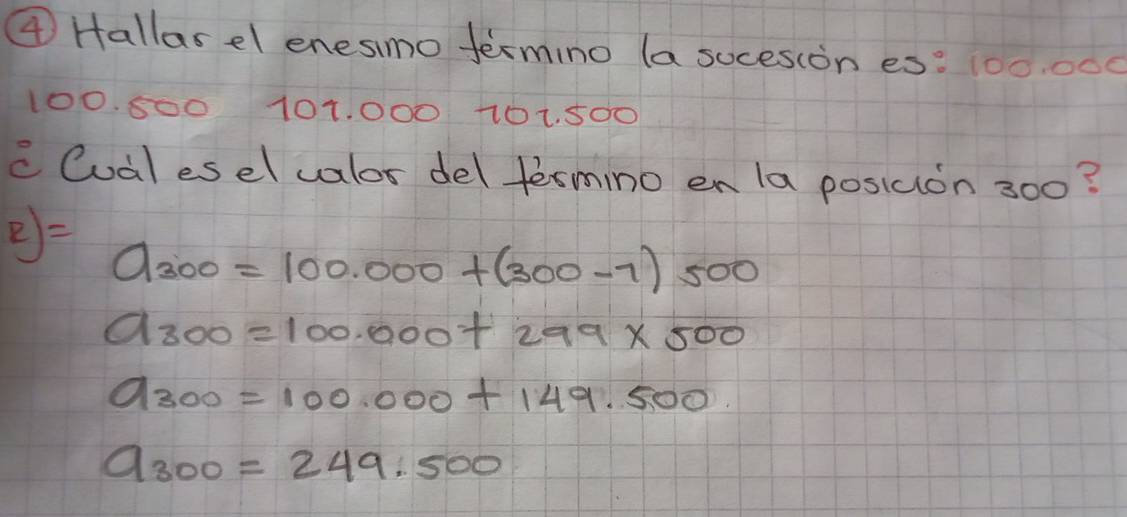 ④ Hallar el enesimo término la sucesión es: 100.000
100.500 101.000 101.500
¿ Cuál es el valor del término en la posición 300?
R)=
a300 = 100.000 + (300-1) 500
a300 = 100.000 + 299 x 500
a300 = 100.000 + 149.500
a300 = 249.500